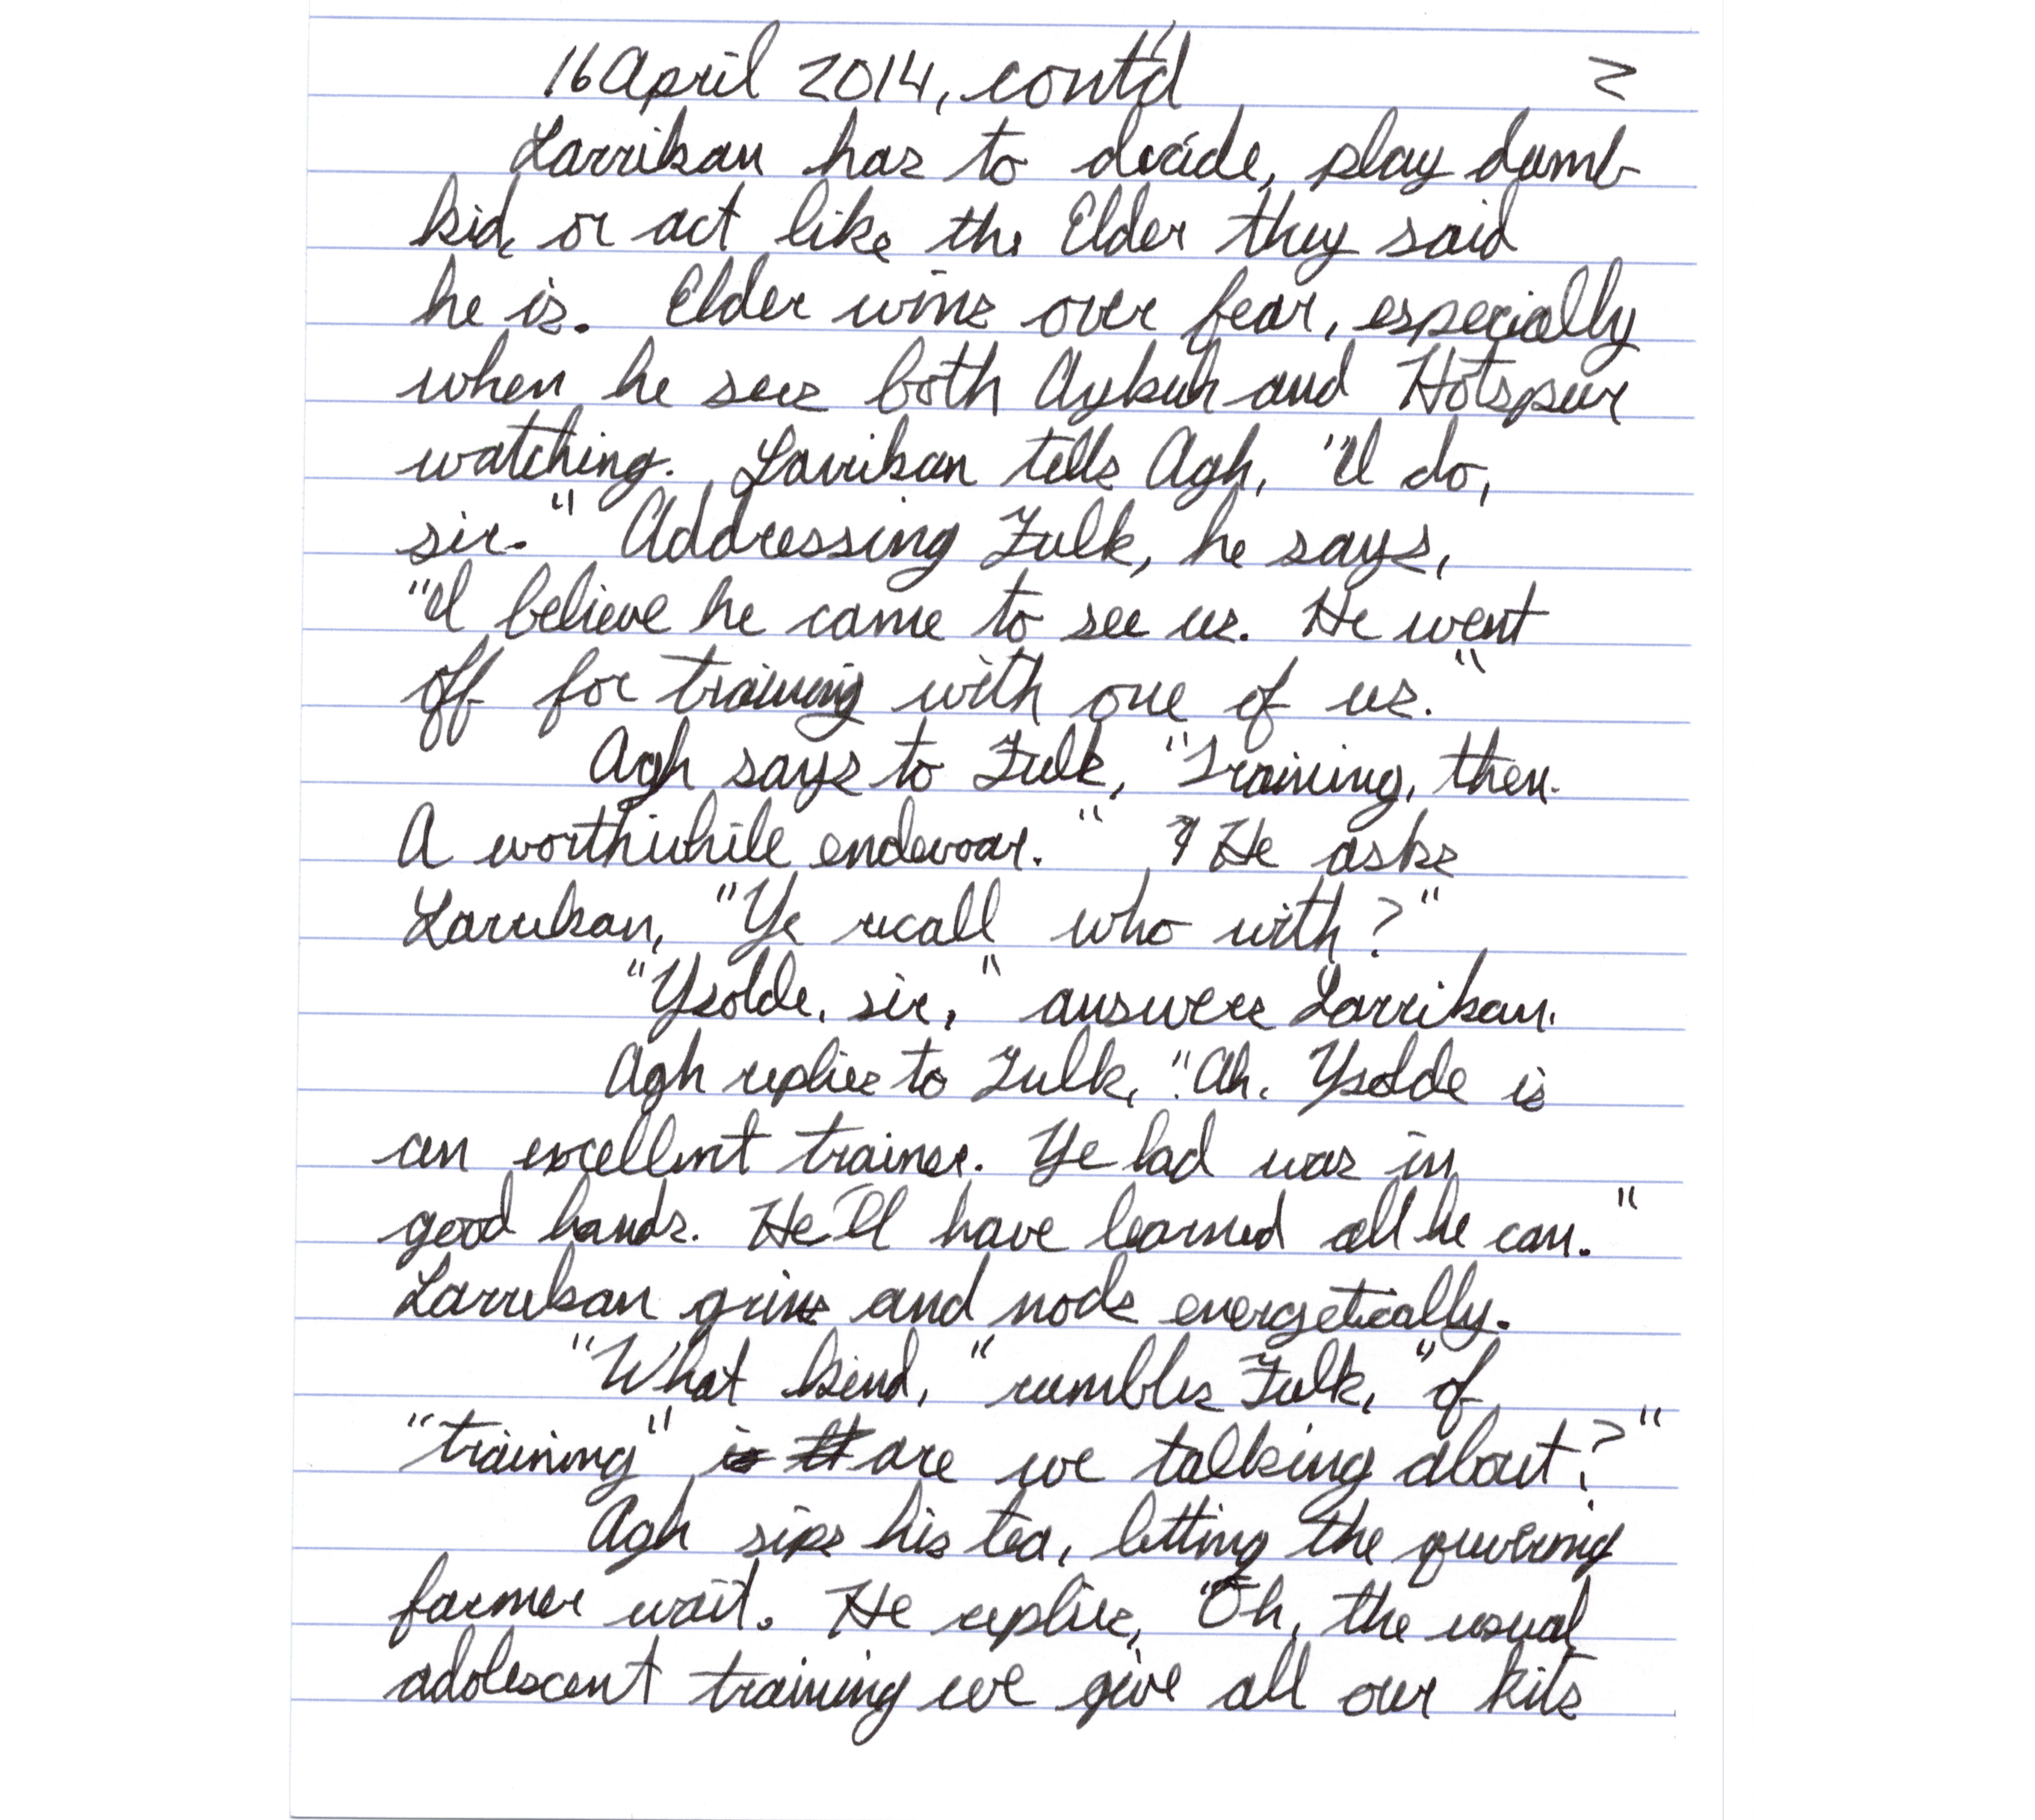 16 April 2014, cont'd 2
Larrikan has to decide, play dumb
kid, or act like the Elder they said
he is. Elder wins over fear, especially
when he sees both Aykuh and Hotspur
watching. Larrikan tells Agh, "I do,
sir." Addressing Fulk, he says,
"I believe he came to see us. He went
off for training with one of us."
Agh says to Fulk, "Training, then.
A worthwhile endevoar." He asks
Larrikan, "Ye recall who with?"
"Ysolde, sir," answers Larrikan.
Agh replies to Fulk, "Ah. Ysolde is
an excellent trainer. Ye lad was in
good hands. He'll have learned all he can."
Larrikan grins and nods energetically.
"What kind," rumbles Fulk, "of
"training" is it are we talking about?"
Agh sips his tea, letting the quivering
farmer wait. He replies, "Oh, the usual
adolescent training we give all our kits